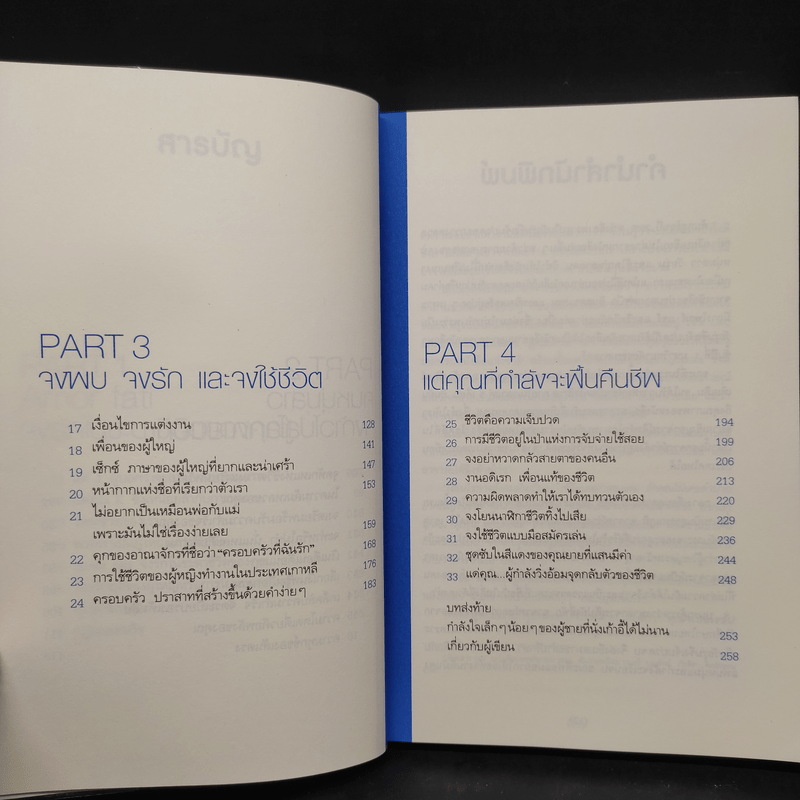 PART 3
จงพบ จงรัก และจงใช้ชีวิต
17 เงื่อนไขการแต่งงาน 128
18 เพื่อนของผู้ใหญ่ 141
19 เซ็กซ์ ภาษาของผู้ใหญ่ที่ยากและน่าเศร้า 147
20 หน้ากากแห่งชื่อที่เรียกว่าตัวเรา 153
21 ไม่อยากเป็นเหมือนพ่อกับแม่
เพราะมันไม่ใช่เรื่องง่ายเลย 159
22 คุกของอาณาจักรที่ชื่อว่า “ครอบครัวที่ฉันรัก” 168
23 การใช้ชีวิตของผู้หญิงทำงานในประเทศเกาหลี 176
24 ครอบครัว ปราสาทที่สร้างขึ้นด้วยคำง่ายๆ 183
PART 4
แต่คุณที่กำลังจะฟื้นคืนชีพ
25 ชีวิตคือความเจ็บปวด 194
26 การมีชีวิตอยู่ในป่าแห่งการจับจ่ายใช้สอย 199
27 จงอย่าหวาดกลัวสายตาของคนอื่น 206
28 งานอดิเรก เพื่อนแท้ของชีวิต 213
29 ความผิดพลาดทำให้เราได้ทบทวนตัวเอง 220
30 จงโยนนาฬิกาชีวิตทิ้งไปเสีย 229
31 จงใช้ชีวิตแบบมือสมัครเล่น 236
32 ชุดชั้นในสีแดงของคุณยายที่แสนมีค่า 244
33 แด่คุณ...ผู้กำลังวิ่งอ้อมจุดกลับตัวของชีวิต 248
บทส่งท้าย
กำลังใจเล็กๆ น้อยๆ ของผู้ชายที่นั่งเก้าอี้ได้ไม่นาน 253
เกี่ยวกับผู้เขียน 258